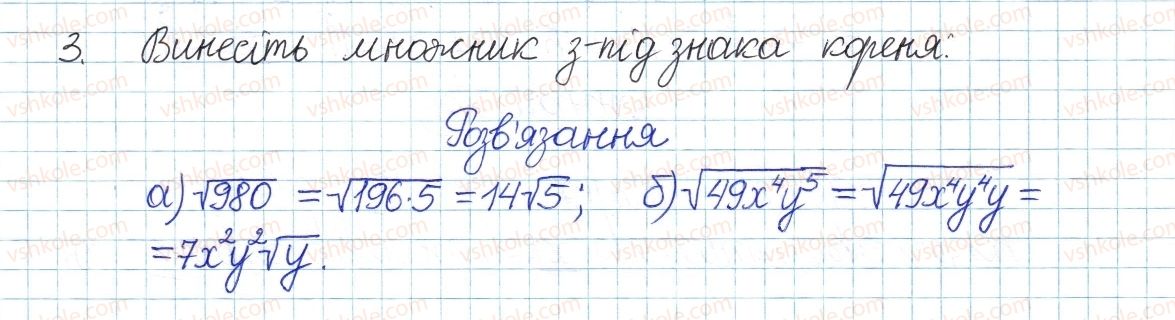 3. Винесіть множник з-під знака кореня:
Розв'язання
а) √980 = √196·5 = 14√5; б) √49x⁴y⁵ = √49x⁴y⁴y =
= 7x²y²√y.